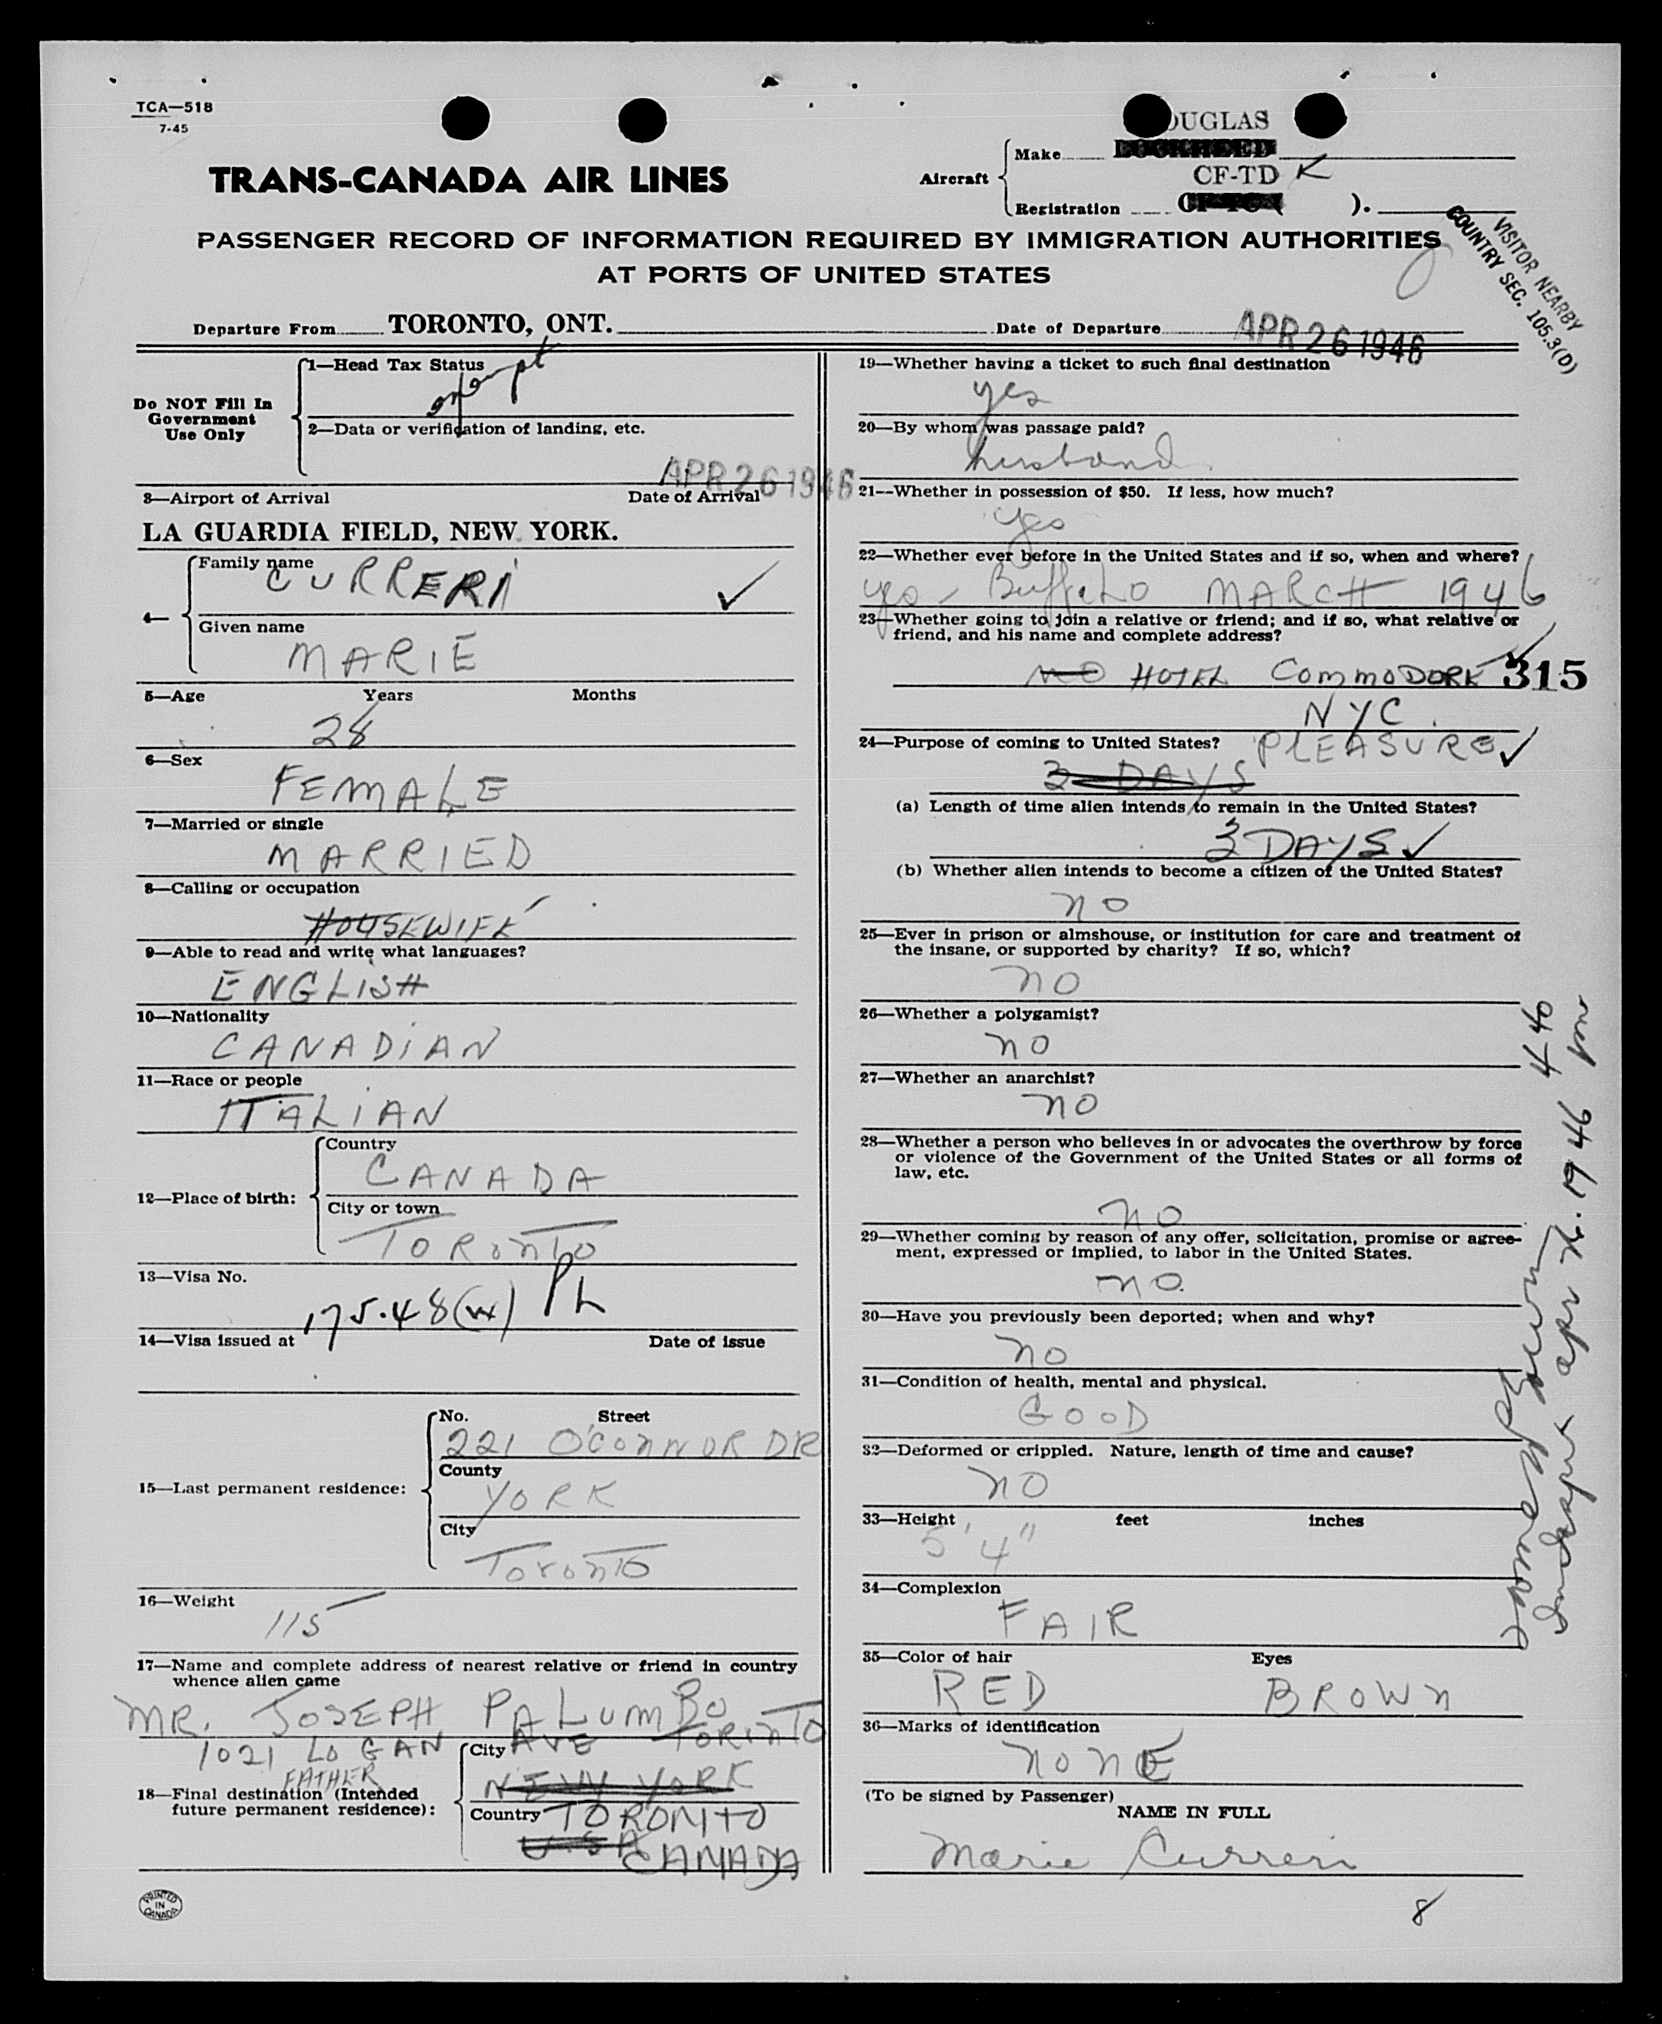 TCA—518
7-45
DOUGLAS
Aircraft
Make
CF-TD K
Registration ).
TRANS-CANADA AIR LINES
PASSENGER RECORD OF INFORMATION REQUIRED BY IMMIGRATION AUTHORITIES
AT PORTS OF UNITED STATES
VISITOR NEARBY
COUNTRY SEC. 105.3(D)
Departure From TORONTO, ONT. Date of Departure APR 26 1946
Do NOT Fill In
Government
Use Only
1—Head Tax Status
exempt
2—Data or verification of landing, etc.
APR 26 1946
3—Airport of Arrival Date of Arrival
LA GUARDIA FIELD, NEW YORK.
4—
Family name
CURRERI
Given name
MARIE
5—Age Years Months
28
6—Sex
FEMALE
7—Married or single
MARRIED
8—Calling or occupation
HOUSEWIFE
9—Able to read and write what languages?
ENGLISH
10—Nationality
CANADIAN
11—Race or people
ITALIAN
12—Place of birth:
Country
CANADA
City or town
TORONTO
13—Visa No.
175.48(w) PL
14—Visa issued at Date of issue
15—Last permanent residence:
No. Street
221 O'CONNOR DR
County
YORK
City
Toronto
16—Weight
115
17—Name and complete address of nearest relative or friend in country
whence alien came
MR. JOSEPH PALUMBO
1021 LOGAN AVE TORONTO
FATHER
18—Final destination (Intended
future permanent residence):
City
NEW YORK
Country TORONTO
USA
CANADA
PRINTED
IN
CANADA
19—Whether having a ticket to such final destination
yes
20—By whom was passage paid?
husband
21—Whether in possession of $50. If less, how much?
yes
22—Whether ever before in the United States and if so, when and where?
yes - Buffalo MARCH 1946
23—Whether going to join a relative or friend; and if so, what relative or
friend, and his name and complete address?
NO HOTEL COMMODORE 315
NYC.
24—Purpose of coming to United States? PLEASURE
3 DAYS
(a) Length of time alien intends to remain in the United States?
3 DAYS
(b) Whether alien intends to become a citizen of the United States?
no
25—Ever in prison or almshouse, or institution for care and treatment of
the insane, or supported by charity? If so, which?
no
26—Whether a polygamist?
no
27—Whether an anarchist?
no
28—Whether a person who believes in or advocates the overthrow by force
or violence of the Government of the United States or all forms of
law, etc.
no
29—Whether coming by reason of any offer, solicitation, promise or agree-
ment, expressed or implied, to labor in the United States.
no.
30—Have you previously been deported; when and why?
no
31—Condition of health, mental and physical.
GOOD
32—Deformed or crippled. Nature, length of time and cause?
NO
33—Height feet inches
5' 4"
34—Complexion
FAIR
35—Color of hair Eyes
RED BROWN
36—Marks of identification
NONE
(To be signed by Passenger)
NAME IN FULL
Marie Curreri
8
Apr 26. 1946 440 pm